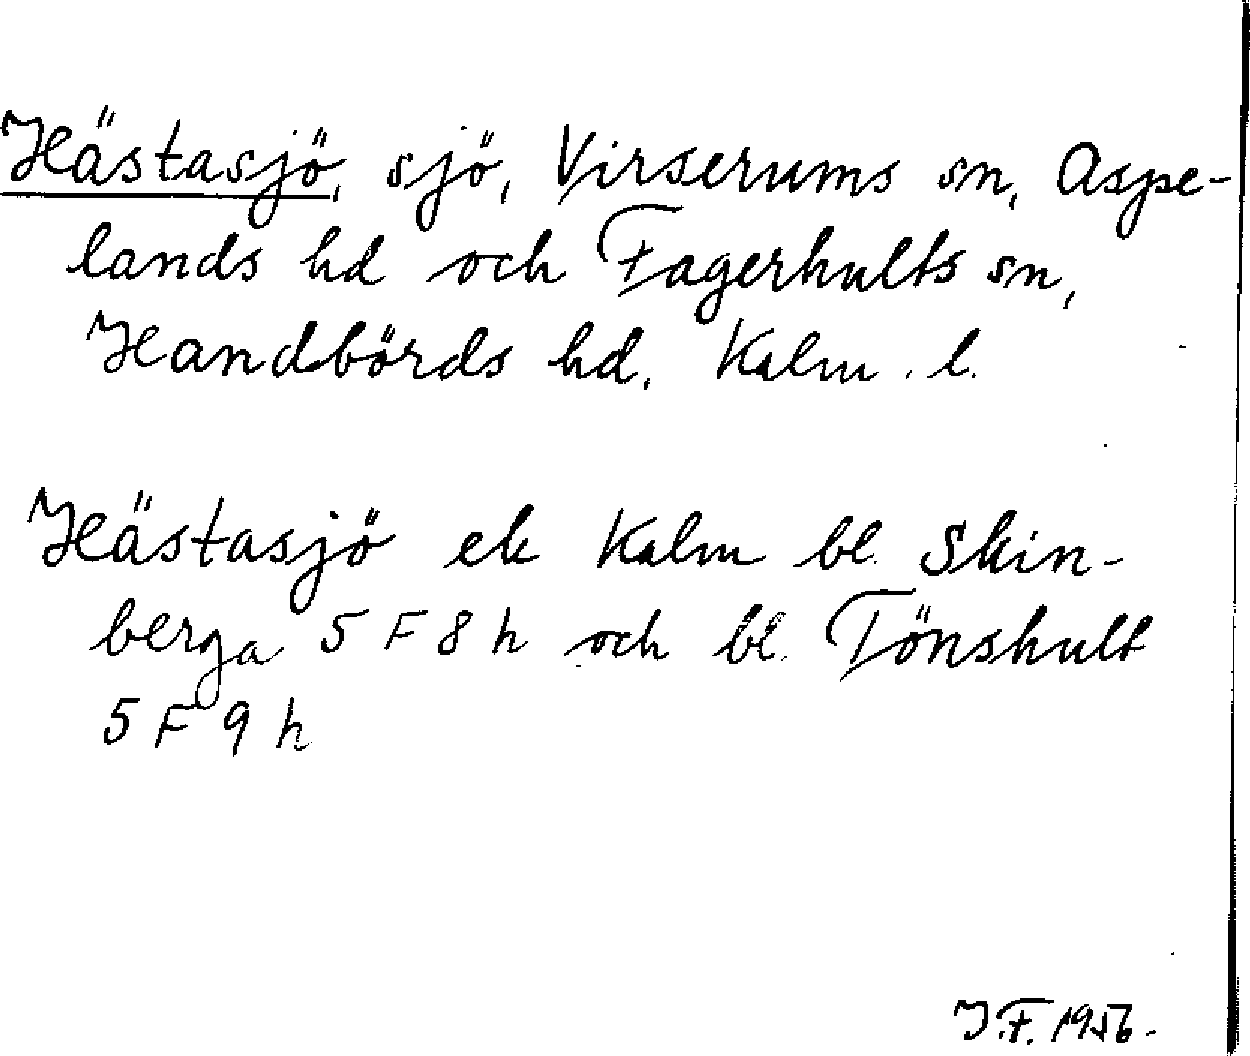 Hästasjö, sjö, Virserums sn, Aspe-
lands hd och Fagerhults sn,
Handbörds hd. Kalm. l.
Hästasjö ek Kalm bl. Skin-
berga 5 F 8 h och bl. Tönshult
5 F 9 h
J.F. 1956.